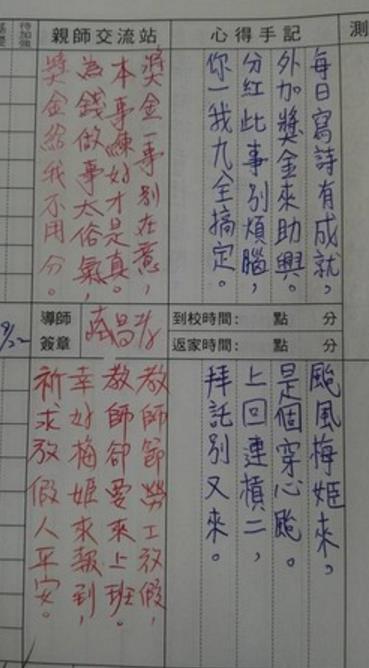 測
心得手記
每日寫詩有成就，
外加獎金來助興。
分紅此事別煩腦，
你一我九全搞定。
親師交流站
獎金一事別在意，
本事練好才是真。
為錢做事太俗氣，
獎金給我不用分。
待加強
到校時間： 點 分
返家時間： 點 分
導師
簽章
颱風梅姬來，
是個穿心颱。
上回連槓二，
拜託別又來。
教師節勞工放假，
教師卻要來上班。
幸好梅姬來報到，
祈求放假人平安。